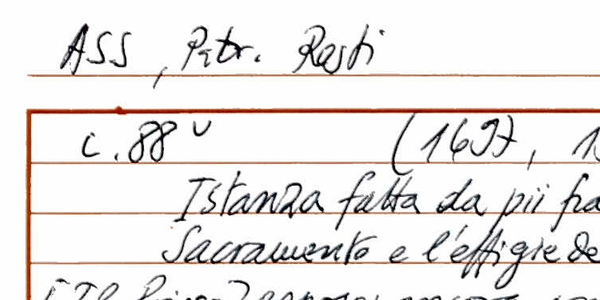 ASS, Patr. Resti
c. 88 v (1697, 1
Istanza fatta da più fra
Sacramento e l'effigie de